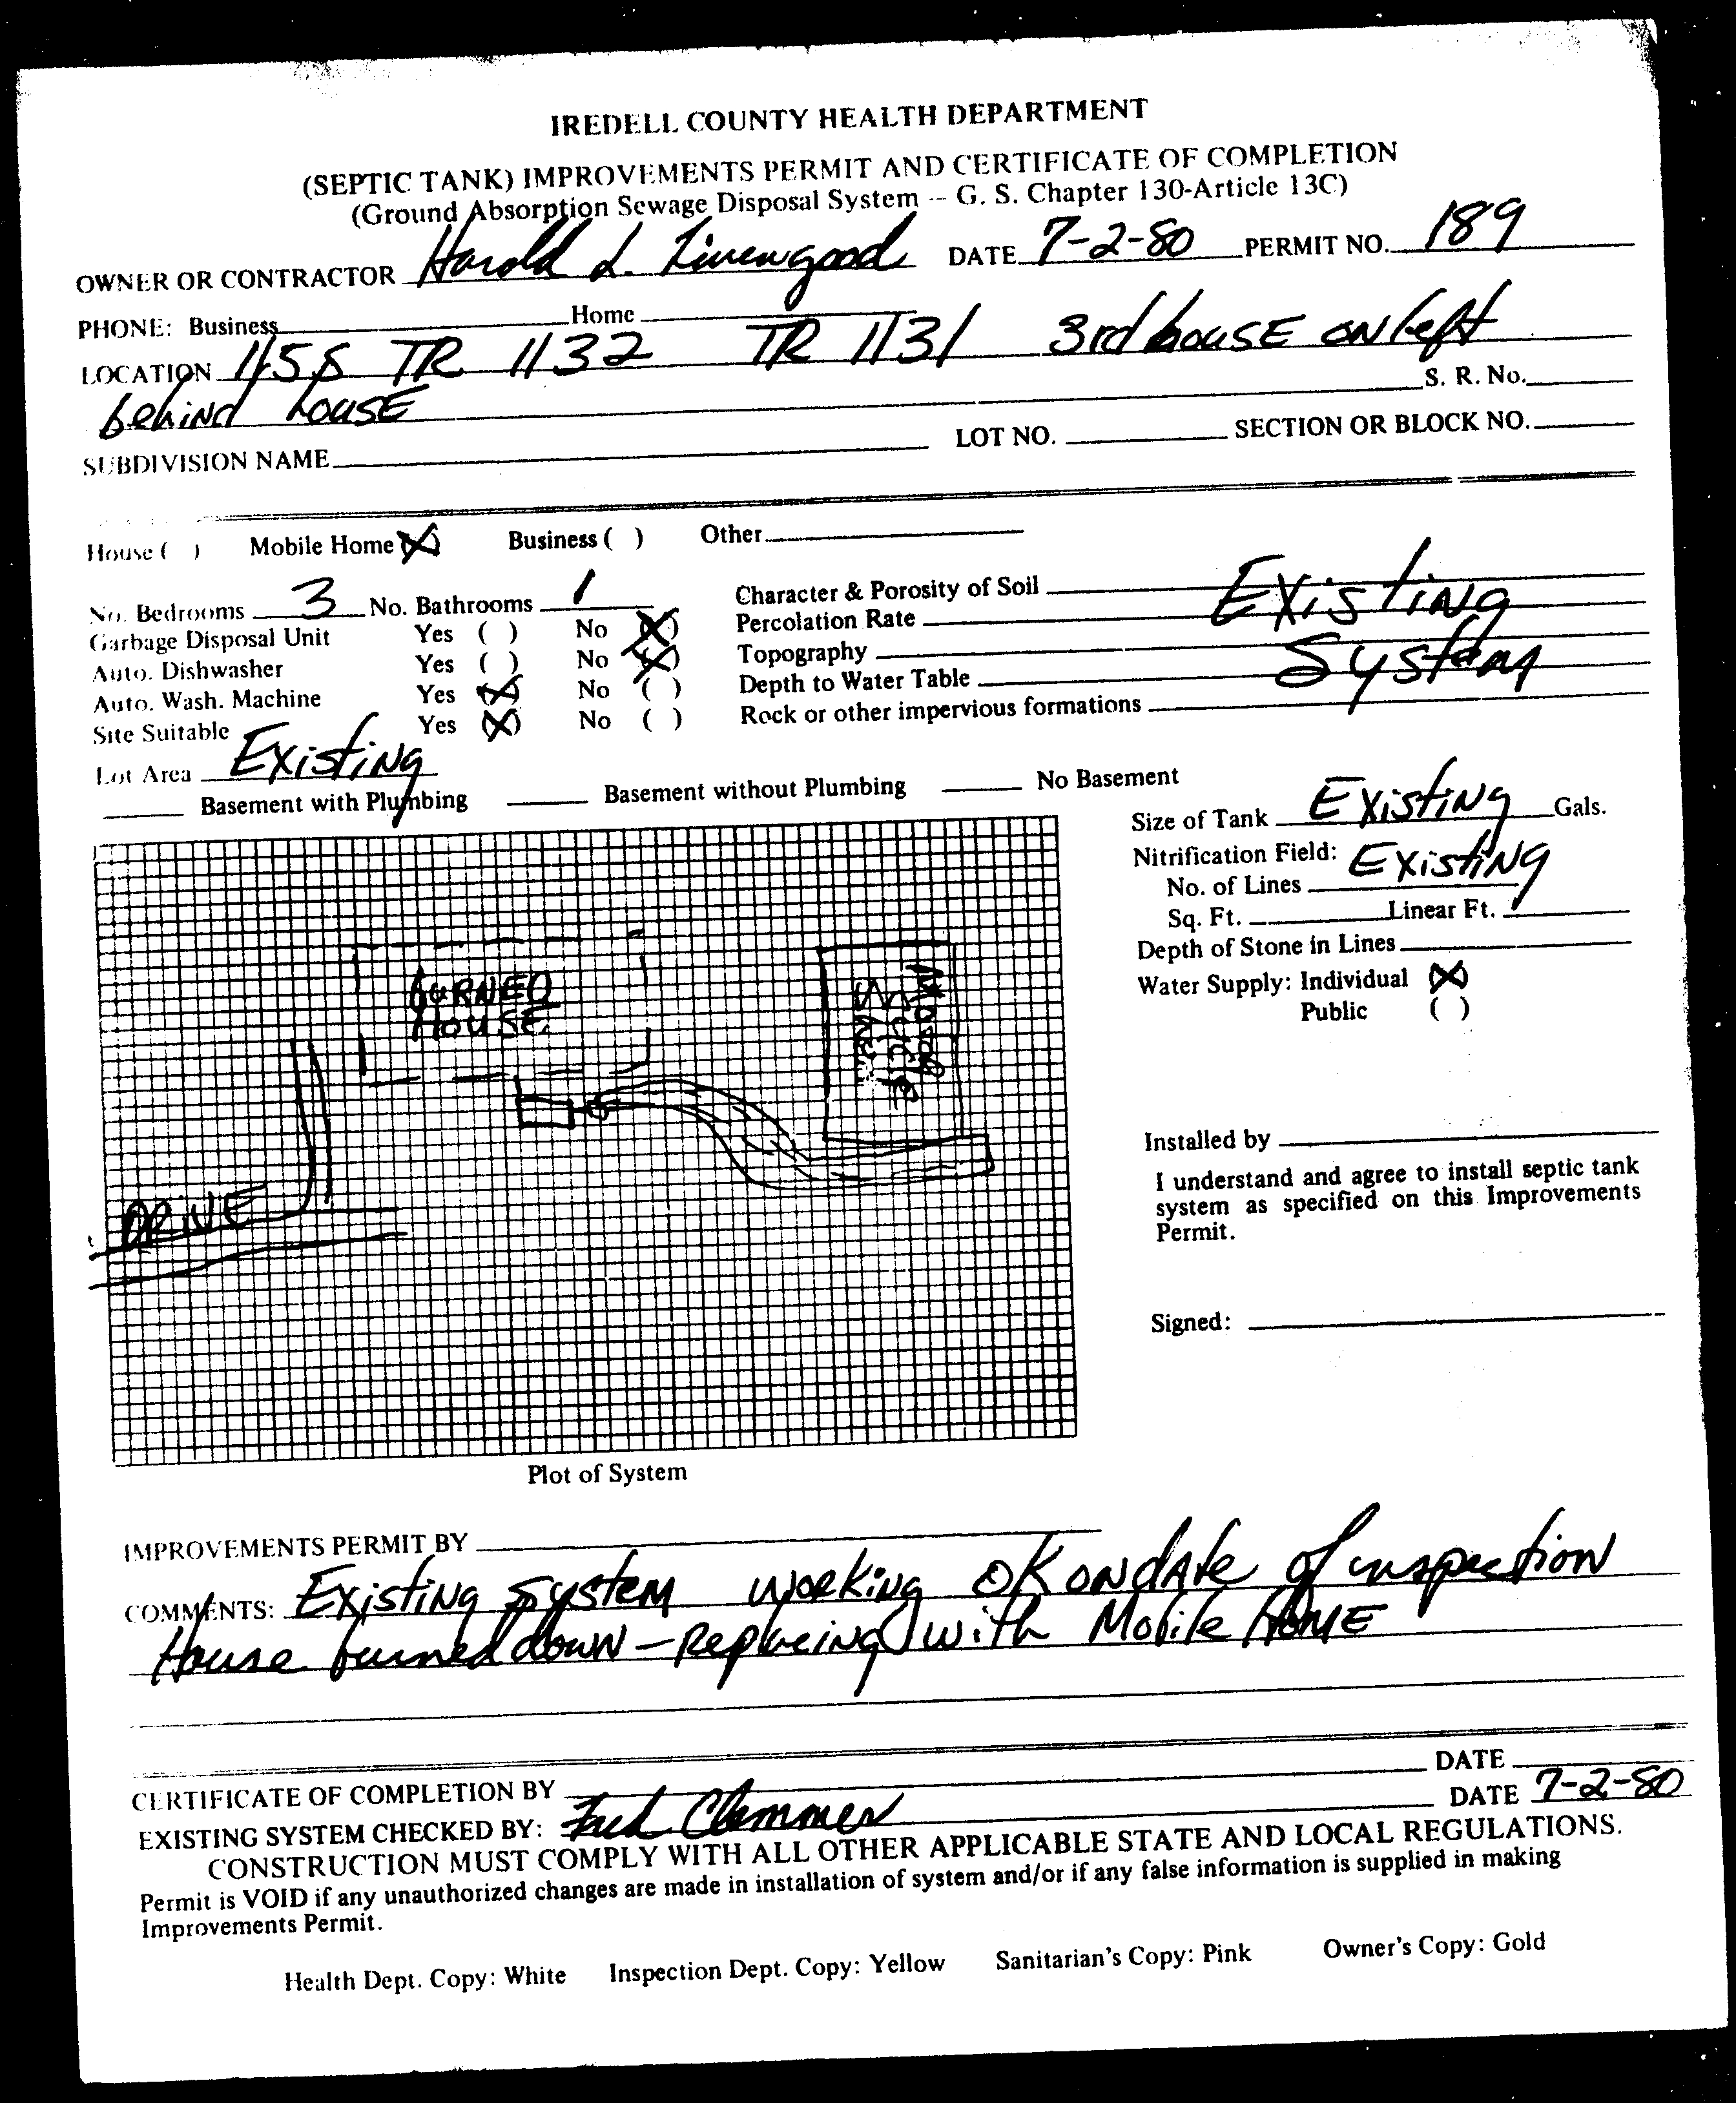 IREDELL COUNTY HEALTH DEPARTMENT
(SEPTIC TANK) IMPROVEMENTS PERMIT AND CERTIFICATE OF COMPLETION
(Ground Absorption Sewage Disposal System -- G. S. Chapter 130-Article 13C)
OWNER OR CONTRACTOR Harold L. Livengood DATE 7-2-80 PERMIT NO. 189
PHONE: Business Home
LOCATION 115 S TR 1132 TR 1131 3rd house on left
behind house S. R. No.
SUBDIVISION NAME LOT NO. SECTION OR BLOCK NO.
House ( ) Mobile Home (X) Business ( ) Other
No. Bedrooms 3 No. Bathrooms 1 Character & Porosity of Soil Existing
Garbage Disposal Unit Yes ( ) No (X) Percolation Rate
Auto. Dishwasher Yes ( ) No (X) Topography System
Auto. Wash. Machine Yes (X) No ( ) Depth to Water Table
Site Suitable Yes (X) No ( ) Rock or other impervious formations
Lot Area Existing
Basement with Plumbing Basement without Plumbing No Basement
Size of Tank Existing Gals.
Nitrification Field: Existing
No. of Lines
Sq. Ft. Linear Ft.
Depth of Stone in Lines
Water Supply: Individual (X)
Public ( )
BURNED
HOUSE
DRIVE
Installed by
I understand and agree to install septic tank
system as specified on this Improvements
Permit.
Signed:
Plot of System
IMPROVEMENTS PERMIT BY
COMMENTS: Existing system working OK on date of inspection
House burned down - Replacing with Mobile Home
CERTIFICATE OF COMPLETION BY DATE
EXISTING SYSTEM CHECKED BY: Fred Clemmer DATE 7-2-80
CONSTRUCTION MUST COMPLY WITH ALL OTHER APPLICABLE STATE AND LOCAL REGULATIONS.
Permit is VOID if any unauthorized changes are made in installation of system and/or if any false information is supplied in making
Improvements Permit.
Health Dept. Copy: White Inspection Dept. Copy: Yellow Sanitarian's Copy: Pink Owner's Copy: Gold